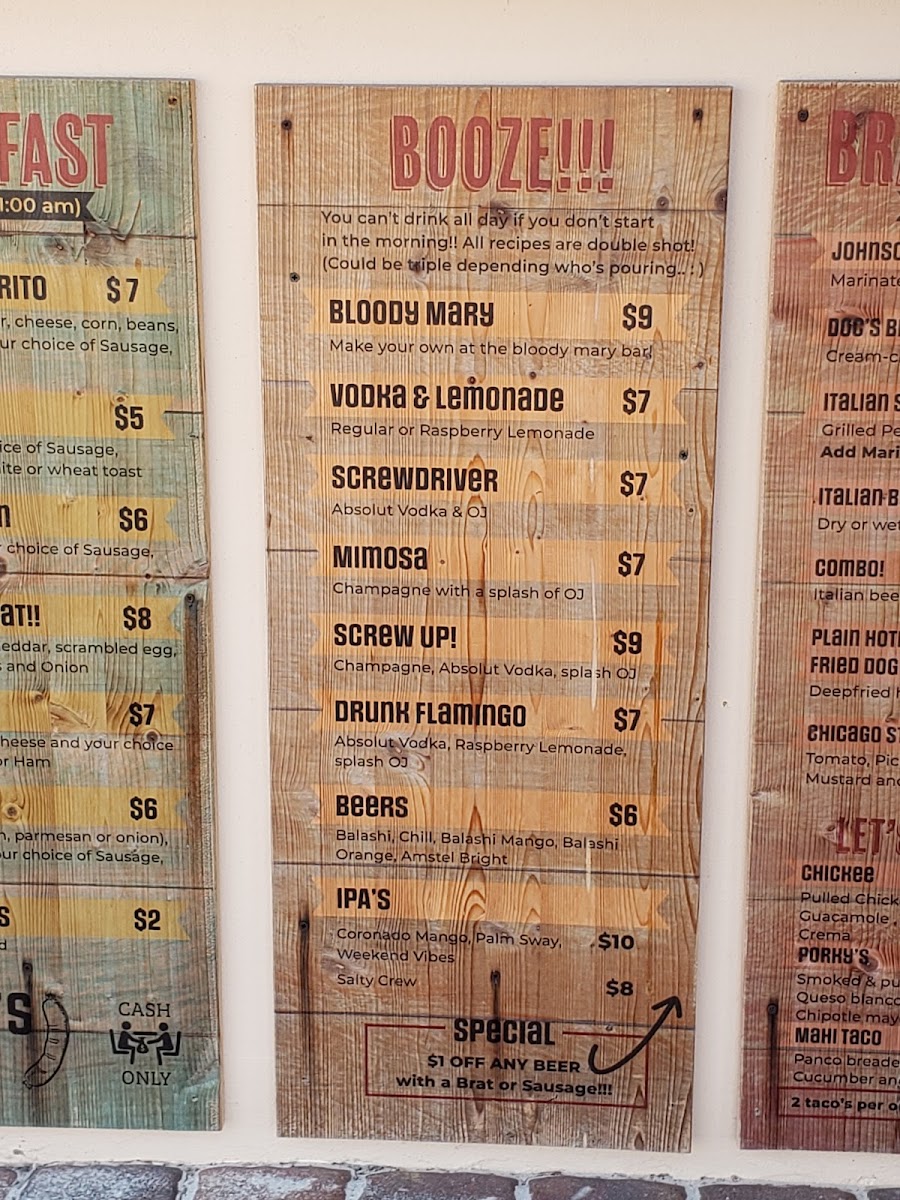 FAST
1:00 am)
RITO $7
r, cheese, corn, beans,
ur choice of Sausage,
$5
ice of Sausage,
ite or wheat toast
n $6
choice of Sausage,
AT!! $8
eddar, scrambled egg,
and Onion
$7
heese and your choice
or Ham
$6
n, parmesan or onion),
ur choice of Sausage,
S $2
d
'S
CASH
ONLY
BOOZE!!!
You can't drink all day if you don't start
in the morning!! All recipes are double shot!
(Could be triple depending who's pouring.. : )
BLOODY MARY $9
Make your own at the bloody mary bar!
VODKA & LEMONADE $7
Regular or Raspberry Lemonade
SCREWDRIVER $7
Absolut Vodka & OJ
MIMOSA $7
Champagne with a splash of OJ
SCREW UP! $9
Champagne, Absolut Vodka, splash OJ
DRUNK FLAMINGO $7
Absolut Vodka, Raspberry Lemonade,
splash OJ
BEERS $6
Balashi, Chill, Balashi Mango, Balashi
Orange, Amstel Bright
IPA'S
Coronado Mango, Palm Sway, $10
Weekend Vibes
Salty Crew $8
SPECIAL
$1 OFF ANY BEER
with a Brat or Sausage!!!
BR
JOHNSO
Marinate
DOG'S B
Cream-c
ITALIAN S
Grilled Pe
Add Mari
ITALIAN B
Dry or wet
COMBO!
Italian bee
PLAIN HOT
FRIED DOG
Deepfried h
CHICAGO ST
Tomato, Pic
Mustard and
LET'S
CHICKEE
Pulled Chick
Guacamole,
Crema
PORKY'S
Smoked & pu
Queso blanco
Chipotle may
MAHI TACO
Panco breade
Cucumber an
2 taco's per o